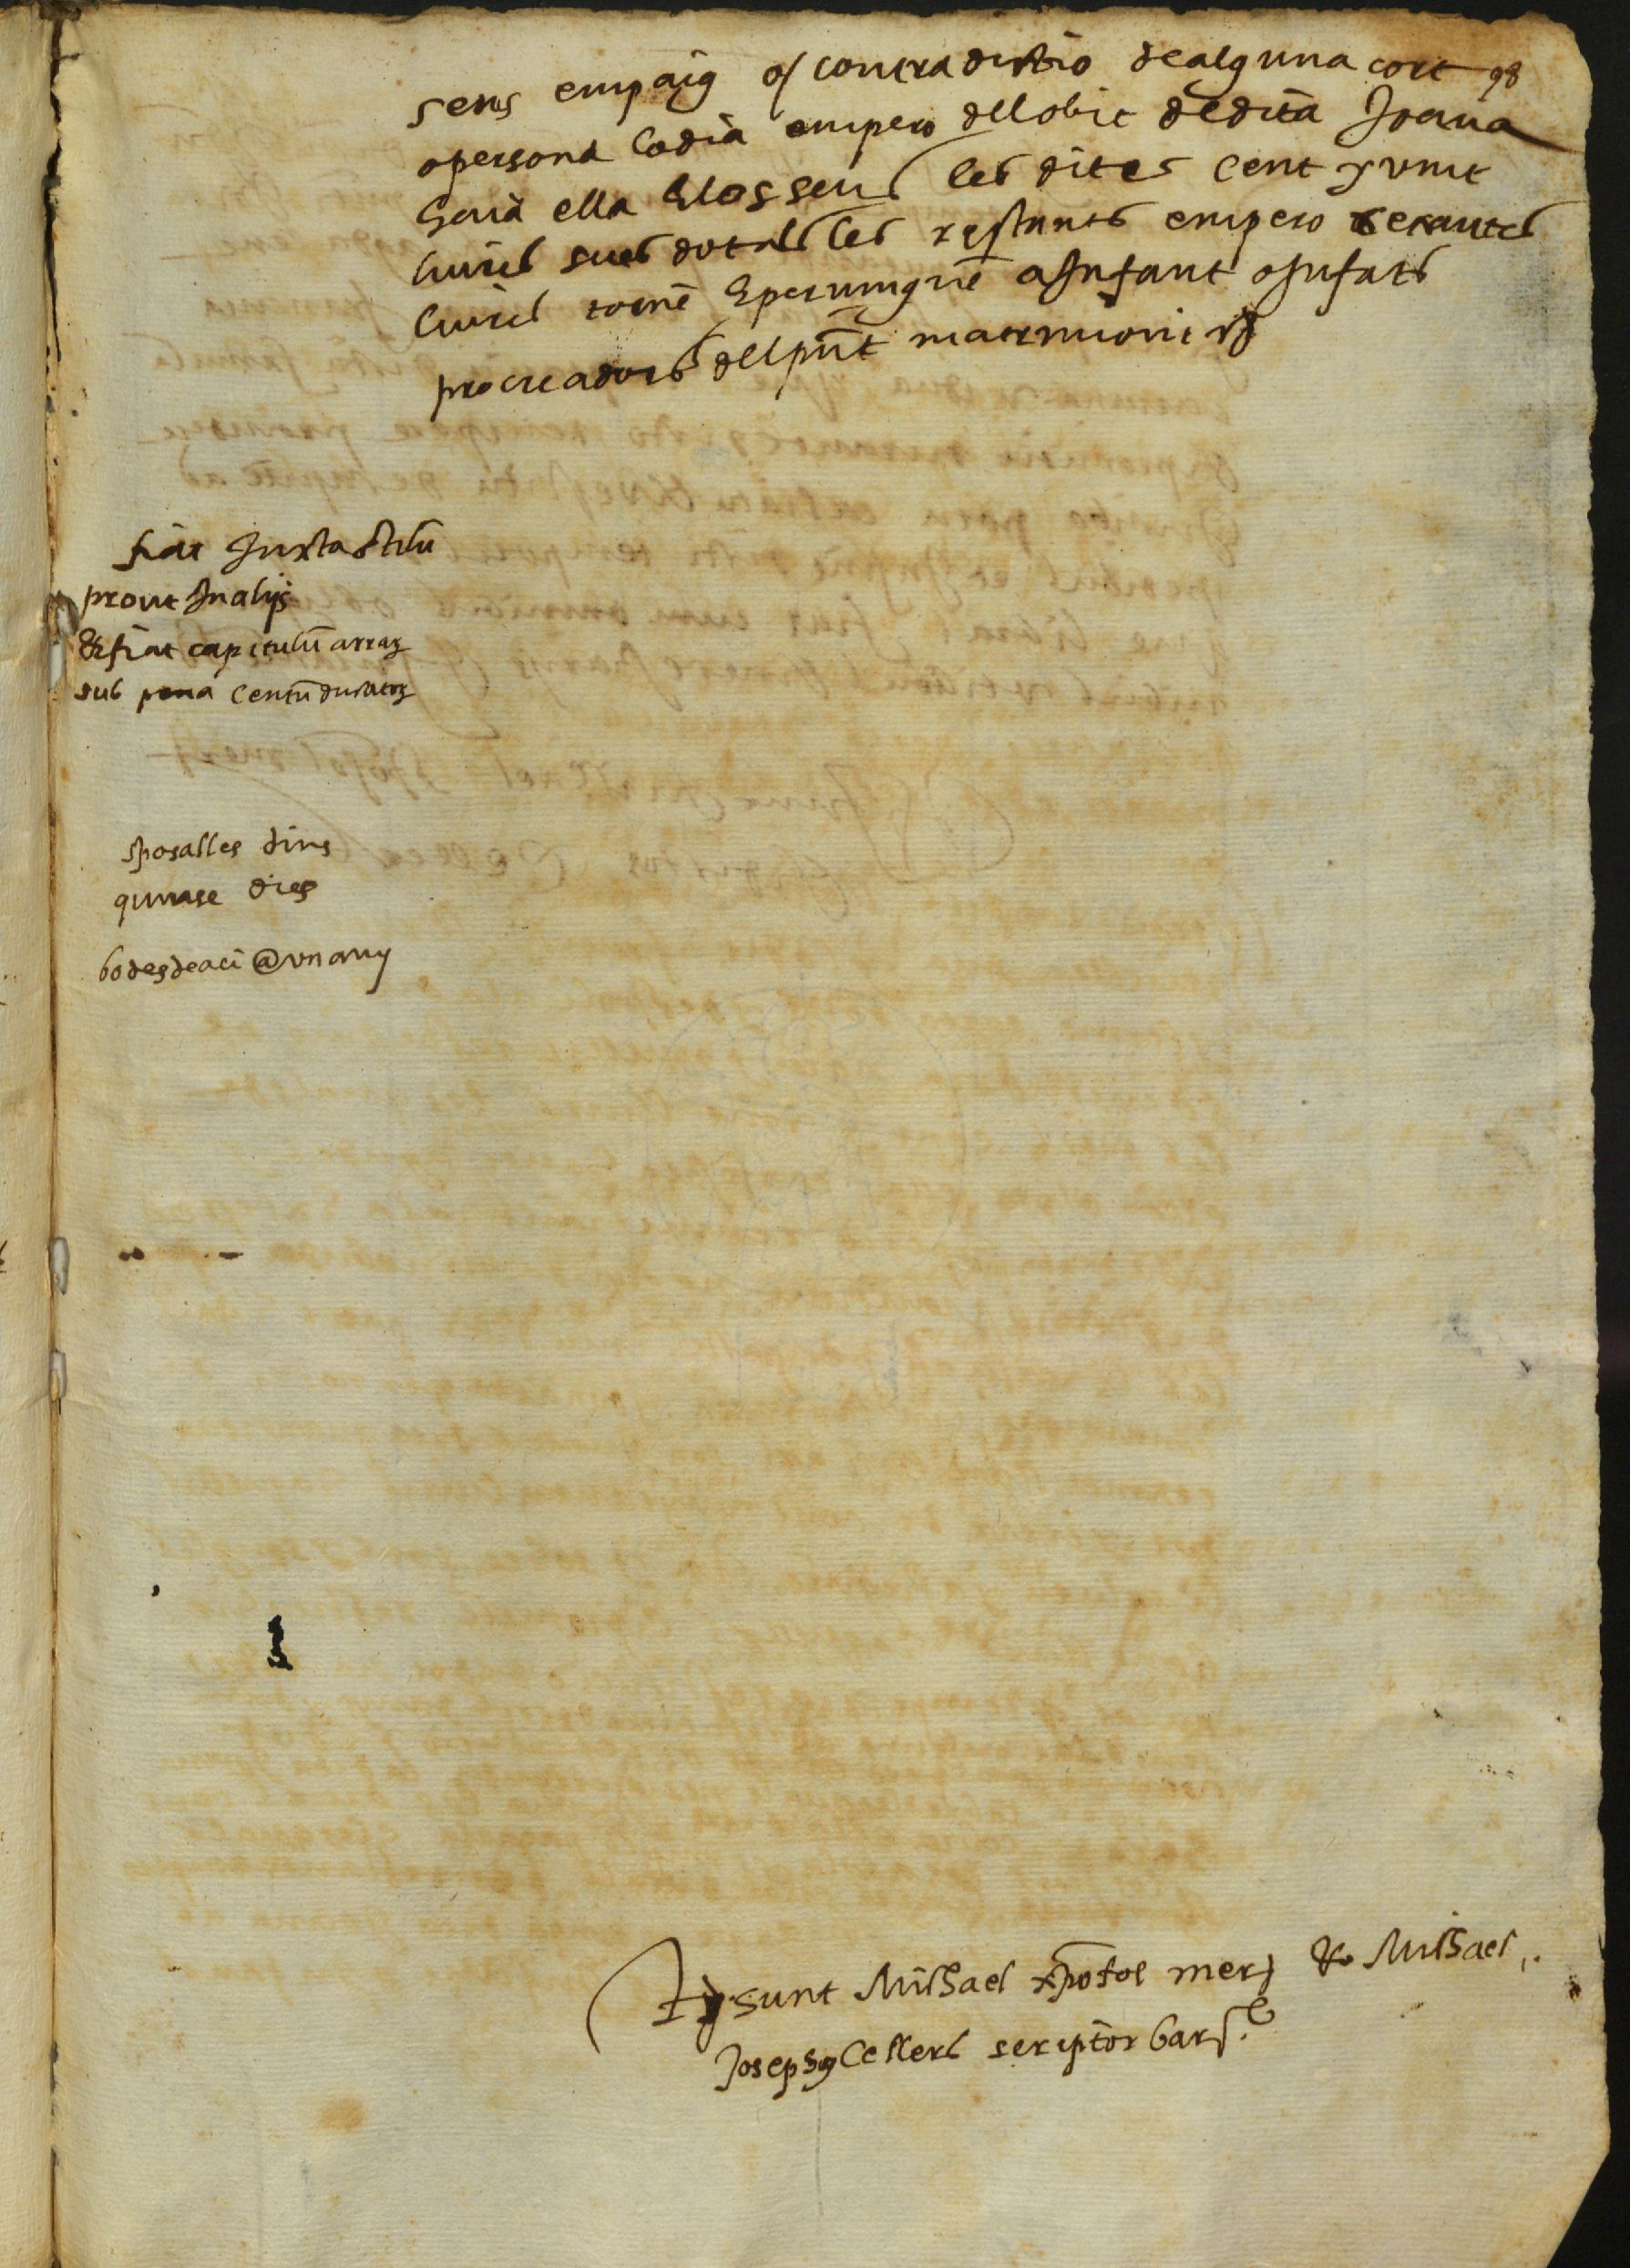 98
sens empaig o contradictio de alguna cort
o persona lo dia empero dell obit de dita Joana
haia ella e los seus les dites cent y vint
liures sues dotals les restants empero
liures torne e peruingue a Infant o Infats
procreadors dell pnt matrimoni
fiat Juxta stilu
prout In alijs
& fiat capitulu arraz
sub pena Centu ducatoz
sposalles dins
quinse dies
bodes de aci @ vn any
Ts sunt Michael xpofol merz & Michael
Joseph Cellers scriptor Bar